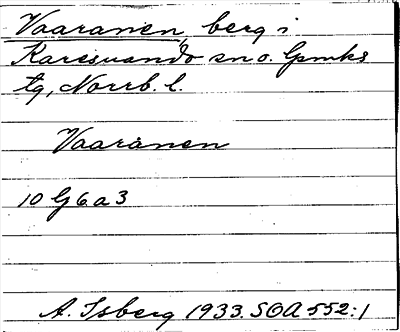 Vaaranen, berg i
Karesuando sn o. Gpmks
tg, Norrb. l.
Vaaranen
10 G 6 a 3
A. Isberg 1933. SOA 552:1